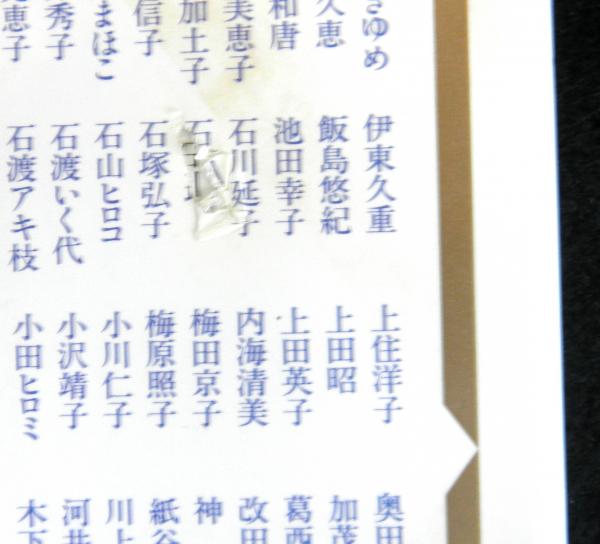 さゆめ
久恵
和唐
美恵子
加土子
信子
まほこ
秀子
恵子
伊東久重
飯島悠紀
池田幸子
石川延子
石
石塚弘子
石山ヒロコ
石渡いく代
石渡アキ枝
上住洋子
上田昭
上田英子
内海清美
梅田京子
梅原照子
小川仁子
小沢靖子
小田ヒロミ
奥田
加茂
葛西
改田
神
紙谷
川上
河井
木下